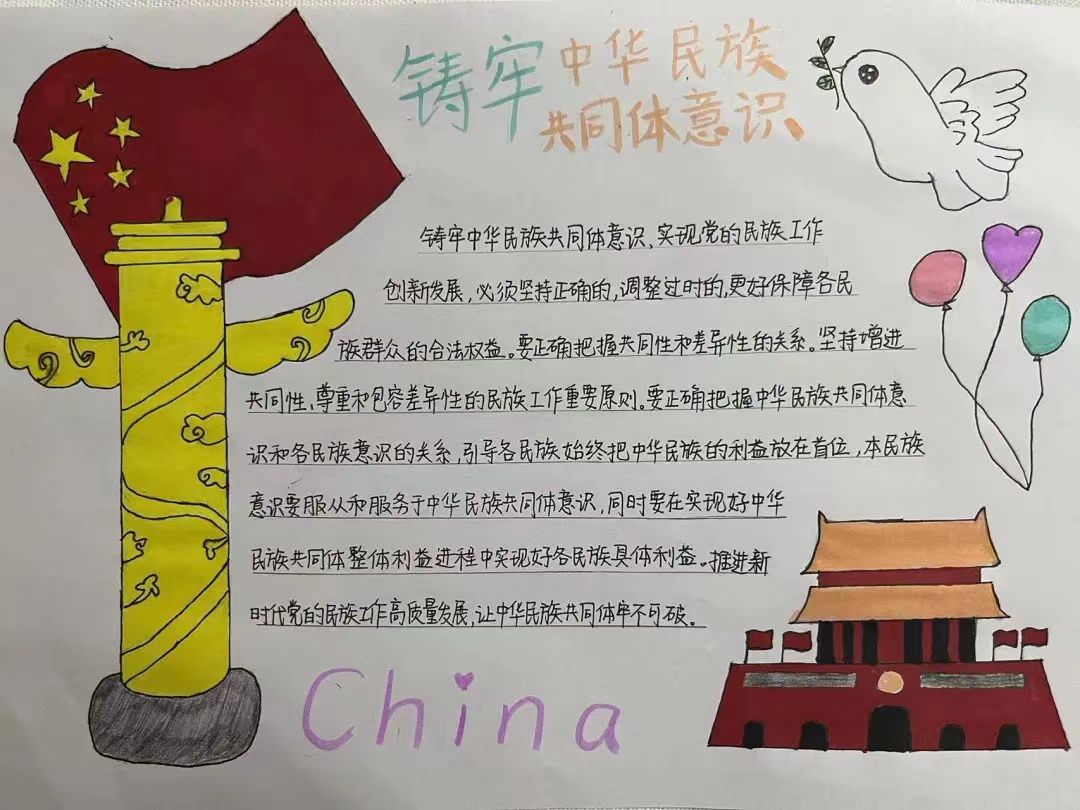 铸牢中华民族
共同体意识
铸牢中华民族共同体意识，实现党的民族工作
创新发展，必须坚持正确的，调整过时的，更好保障各民
族群众的合法权益。要正确把握共同性和差异性的关系。坚持增进
共同性、尊重和包容差异性的民族工作重要原则。要正确把握中华民族共同体意
识和各民族意识的关系，引导各民族始终把中华民族的利益放在首位，本民族
意识要服从和服务于中华民族共同体意识，同时要在实现好中华
民族共同体整体利益进程中实现好各民族具体利益。推进新
时代党的民族工作高质量发展，让中华民族共同体牢不可破。
China